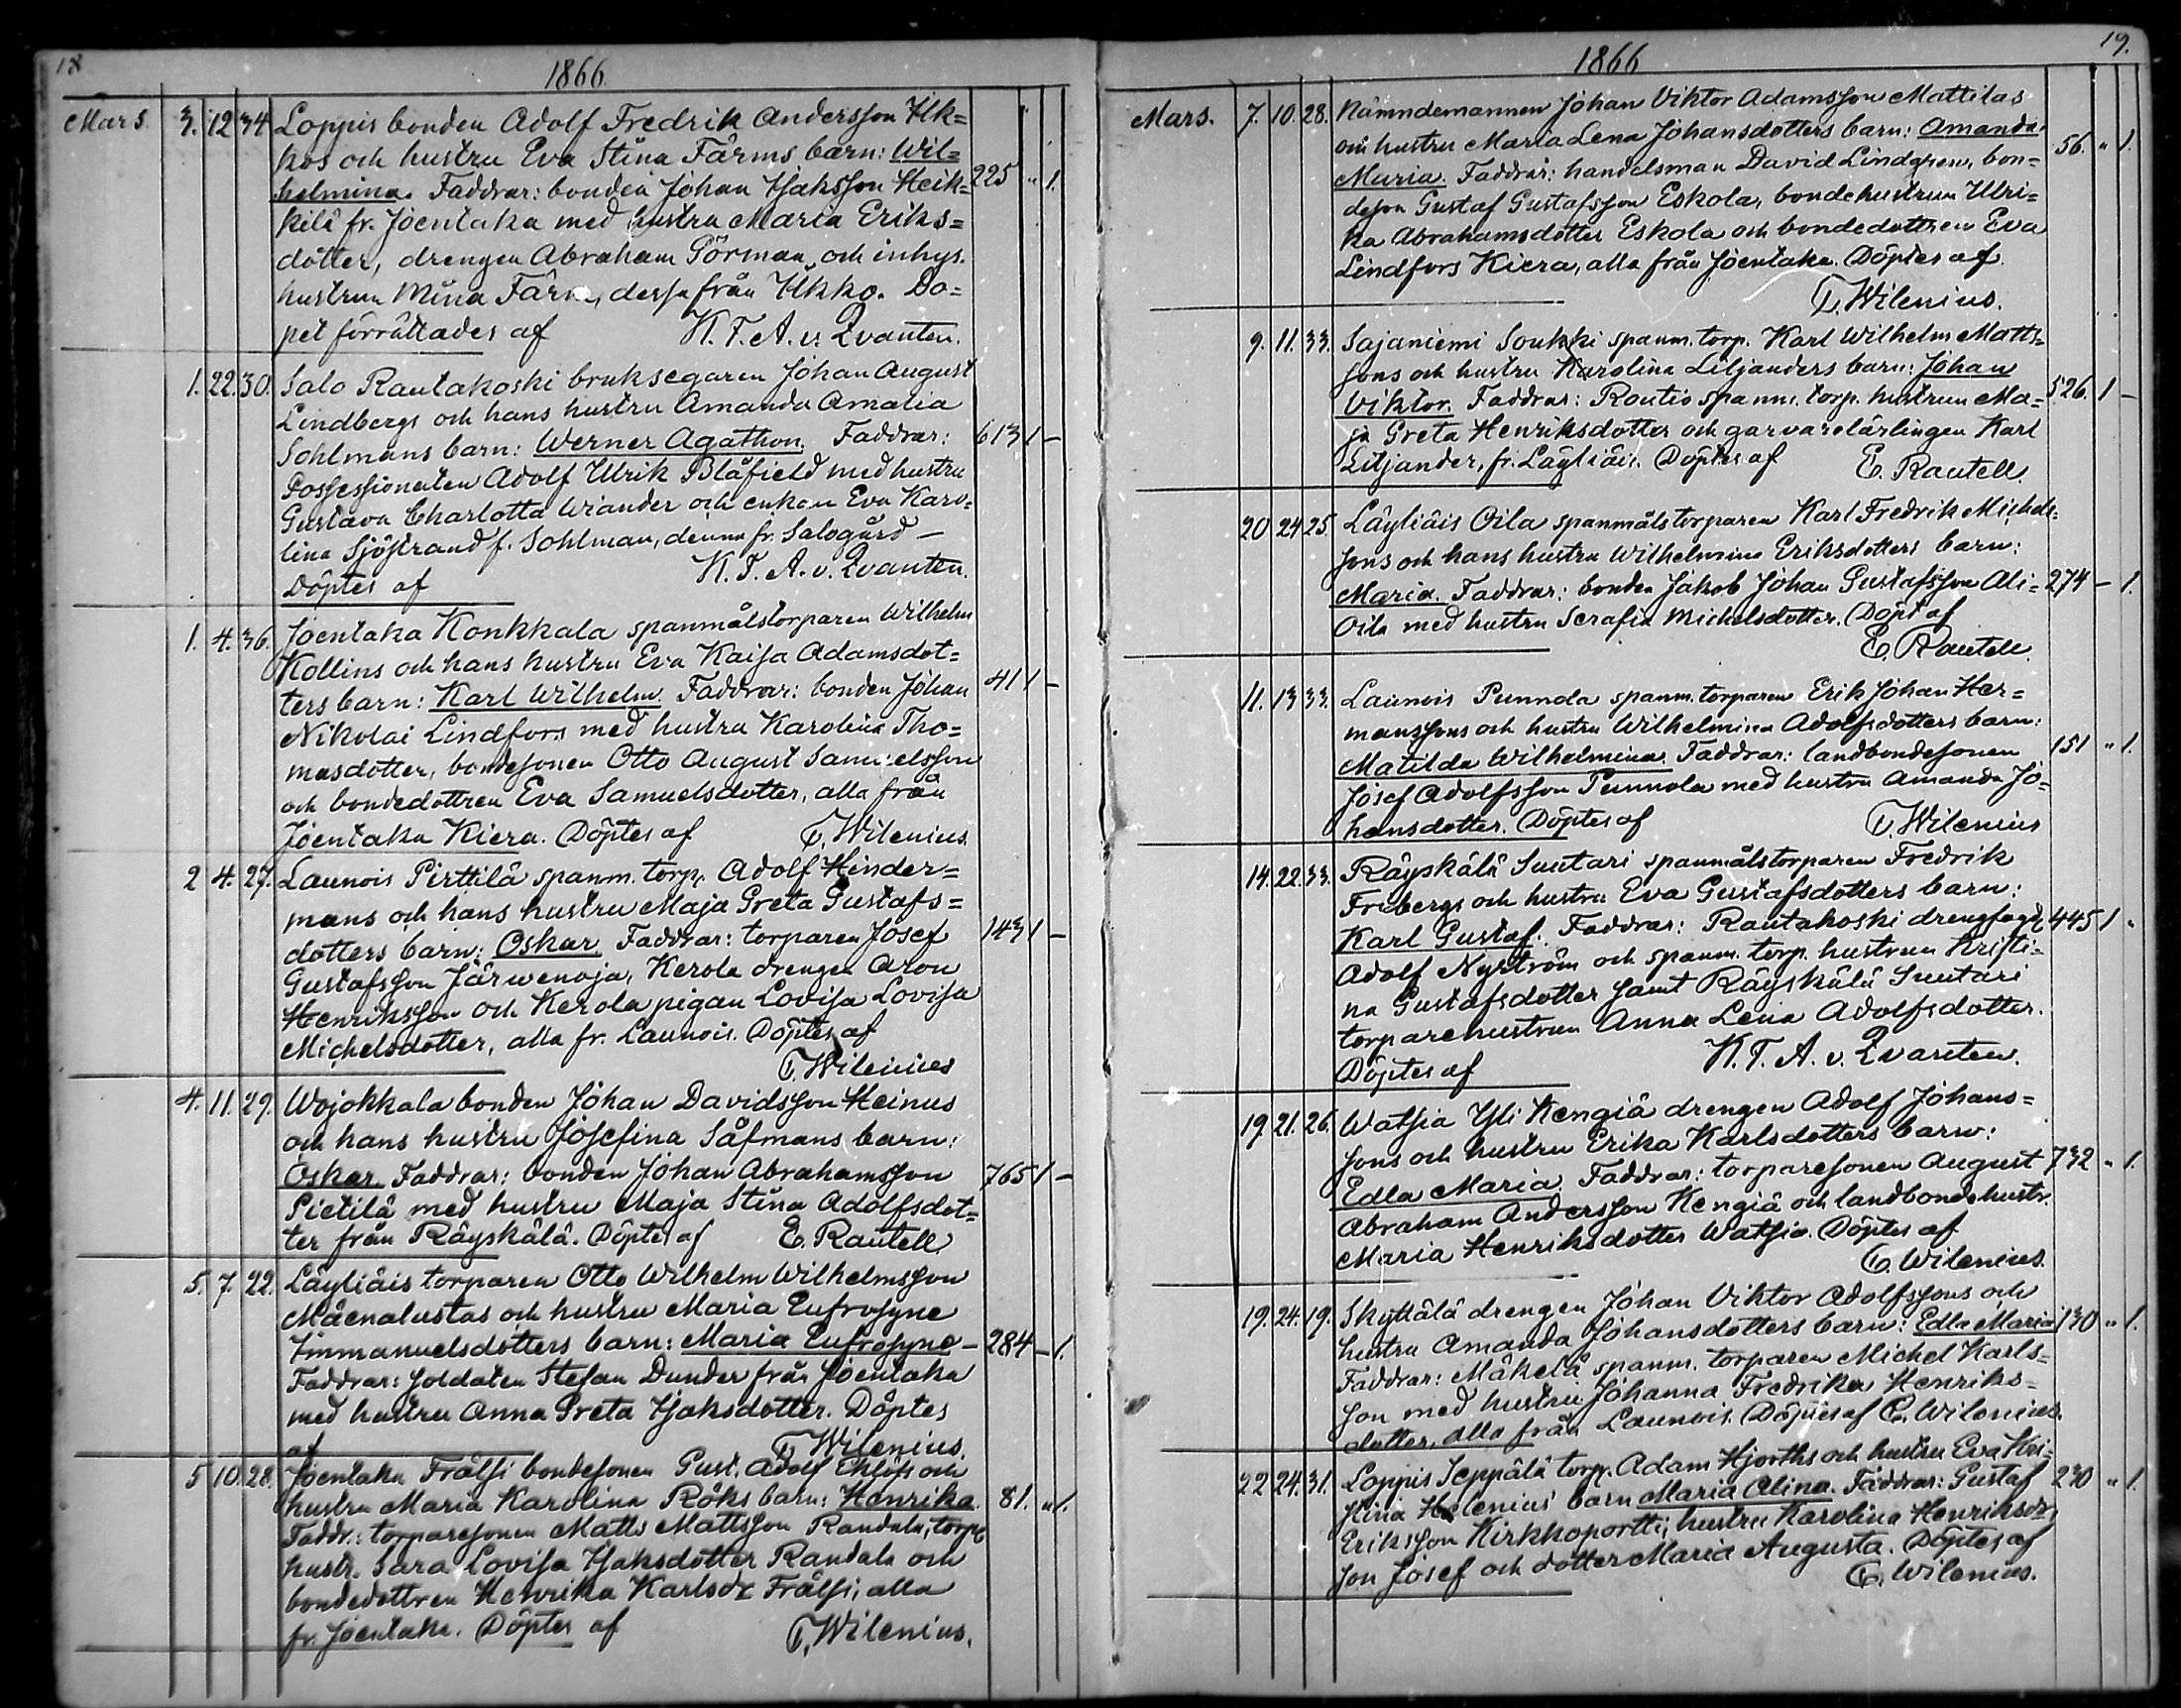 18
1866.
Mars. 3. 12 34 Loppis bonden Adolf Fredrik Andersson Ilk=
kos och hustru Eva Stina Färms barn: Wil=
helmina. Faddrar: bonden Johan Isaksson Heik= 225 " 1.
kilä fr. Joentaka med hustru Maria Eriks=
dotter, drengen Abraham Görman och inhys.
hustrun Mina Färm, dessa från Ilkko. Do=
pet förrättades af K. F. A. v. Qvanten.
1. 22. 30. Salo Rautakoski bruksegaren Johan August
Lindbergs och hans hustru Amanda Amalia
Sohlmans barn: Werner Agathon. Faddrar: 613 1 –
Possessionaten Adolf Ulrik Blåfield med hustru
Gustava Charlotta Wiander och enkan Eva Karo=
lina Sjöstrand f. Sohlman, denna fr. Salogård –
Döptes af K. F. A. v. Qvanten.
1. 4. 36. Joentaka Konkkala spanmålstorparen Wilhelm
Kollins och hans hustru Eva Kaisa Adamsdot=
ters barn: Karl Wilhelm. Faddrar: bonden Johan 41 1 –
Nikolai Lindfors med hustru Karolina Tho=
masdotter, bondesonen Otto August Samuelsson
och bondedottren Eva Samuelsdotter, alla från
Joentaka Kiera. Döptes af T. Wilenius.
2 4. 27. Launois Pirttilä spanm. torp. Adolf Hinder=
mans och hans hustru Maja Greta Gustafs=
dotters barn: Oskar. Faddrar: torparen Josef 143 1 –
Gustafsson Järwenoja, Kerola drengen Aron
Henriksson och Kerola pigan Lovisa Lovisa
Michelsdotter, alla fr. Launois. Döptes af
T. Wilenius
4. 11. 29. Wojakkala bonden Johan Davidsson Heinus
och hans hustru Josefina Säfmans barn:
Oskar. Faddrar: bonden Johan Abrahamsson 765 1 –
Pietilä med hustru Maja Stina Adolfsdot=
ter från Räyskälä. Döptes af E. Rautell
5. 7. 22. Läyliäis torparen Otto Wilhelm Wilhelmsson
Mäenalustas och hustru Maria Eufrosyne
Immanuelsdotters barn: Maria Eufrosyne – 284 – 1.
Faddrar: soldaten Stefan Dunder från Joentaka
med hustru Anna Greta Isaksdotter. Döptes
af T. Wilenius.
5 10. 28. Joentaka Frälsi bondesonen Gust. Adolf Eklöfs och
hustru Maria Karolina Röks barn: Henrika. 81. " 1.
Faddr.: torparesonen Matts Mattsson Randala, torp.
hustr. Sara Lovisa Isaksdotter Randala och
bondedottren Henrika Karlsdr Frälsi, alla
fr. Joentaka. Döptes af T. Wilenius.
19.
1866
Mars. 7. 10. 28. Nämndemannen Johan Viktor Adamsson Mattilas
och hustru Maria Lena Johansdotters barn: Amanda 56. " 1.
Maria. Faddrar: handelsman David Lindgren, bon=
deson Gustaf Gustafsson Eskola, bondehustrun Ulri=
ka Abrahamsdotter Eskola och bondedottren Eva
Lindfors Kiera, alla från Joentaka. Döptes af
T. Wilenius.
9. 11. 33. Sajaniemi Soukki spanm. torp. Karl Wilhelm Matts=
sons och hustru Karolina Liljanders barn: Johan
Viktor. Faddrar: Rautio spanm. torp. hustrun Ma= 526. 1 –
ja Greta Henriksdotter och garvarelärlingen Karl
Liljander, fr. Läyliäis. Döptes af E. Rautell.
20 24 25. Läyliäis Oila spanmålstorparen Karl Fredrik Michels=
sons och hans hustru Wilhelmina Eriksdotters barn:
Maria. Faddrar: bonden Jakob Johan Gustafsson Ali= 274 – 1.
Oila med hustru Serafia Michelsdotter. Döpt af
E. Rautell.
11. 13 33. Launois Punnola spanm. torparen Erik Johan Her=
manssons och hustru Wilhelmina Adolfsdotters barn:
Matilda Wilhelmina. Faddrar: landbondesonen 151 " 1.
Josef Adolfsson Punnola med hustru Amanda Jo=
hansdotter. Döptes af T. Wilenius
14. 22. 33. Räyskälä Suntari spanmålstorparen Fredrik
Fribergs och hustru Eva Gustafsdotters barn:
Karl Gustaf. Faddrar: Rautakoski drengfogd. 445 1 "
Adolf Nyström och spanm. torp. hustrun Kristi=
na Gustafsdotter samt Räyskälä Suntari
torparehustrun Anna Lena Adolfsdotter.
Döptes af K. F. A. v. Qvanten.
19. 21. 26. Watsia Yli Kengiä drengen Adolf Johans=
sons och hustru Erika Karlsdotters barn:
Edla Maria. Faddrar: torparesonen August 732 " 1.
Abraham Andersson Kengiä och landbondehustr.
Maria Henriksdotter Watsia. Döptes af
T. Wilenius.
19. 24. 19. Skyttälä drengen Johan Viktor Adolfssons och
hustru Amanda Johansdotters barn: Edla Maria 130 " 1.
Faddrar: Mäkelä spanm. torparen Michel Karls=
son med hustru Johanna Fredrika Henriks=
dotter, alla från Launois. Döptes af T. Wilenius.
22 24. 31. Loppis Seppälä torp. Adam Hjorths och hustru Eva Kri=
stina Helenius' barn Maria Alina. Faddrar: Gustaf 230 " 1.
Eriksson Kirkkoportti, hustru Karolina Henriksdr,
son Josef och dotter Maria Augusta. Döptes af
T. Wilenius.